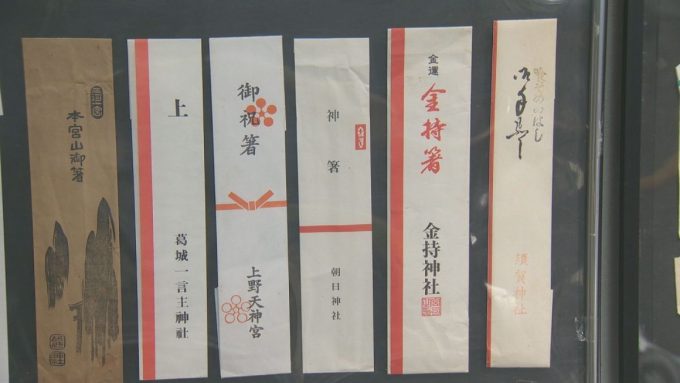 本宮山御箸
上
葛城一言主神社
御祝箸
上野天神宮
神箸
朝日神社
金運
金持箸
金持神社
須賀神社